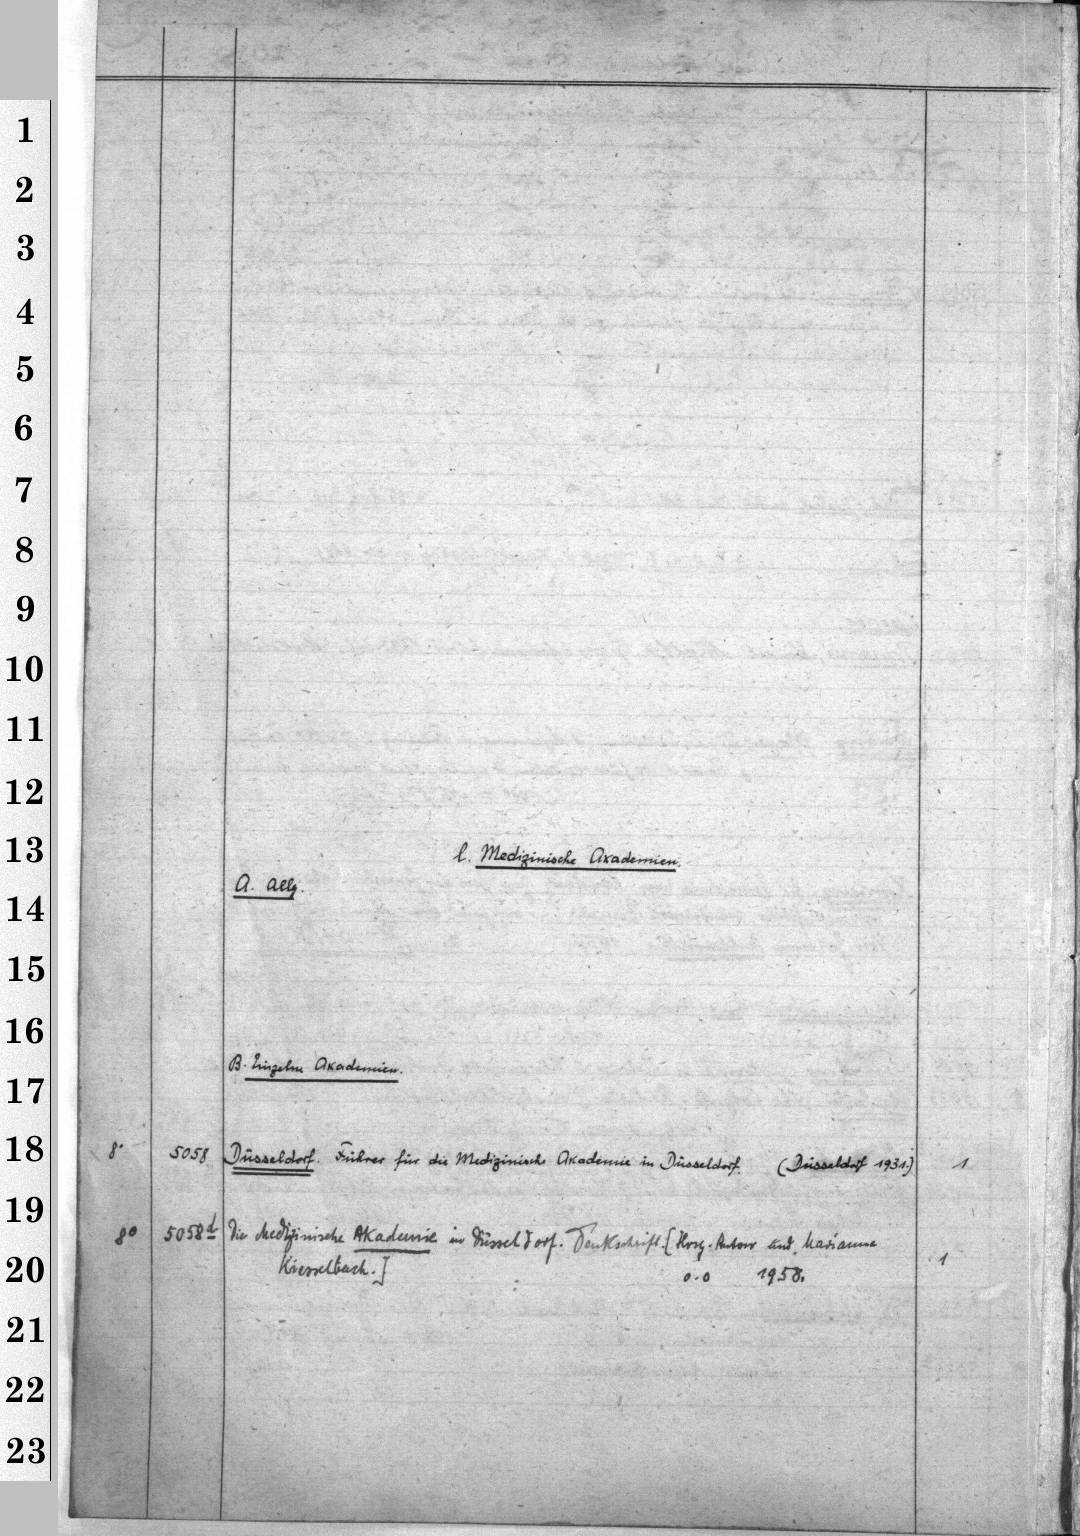 1
2
3
4
5
6
7
8
9
10
11
12
13
14
15
16
17
18
19
20
21
22
23
l. Medizinische Akademien.
A. Allg.
B. Einzelne Akademien.
8° 5058 Düsseldorf. Führer für die Medizinische Akademie in Düsseldorf. (Düsseldorf 1931.) 1
8° 5058d Die Medizinische Akademie in Düsseldorf. Denkschrift. [Hrsg. Autor und Marianne
Kiesselbach.] o.O 1958. 1